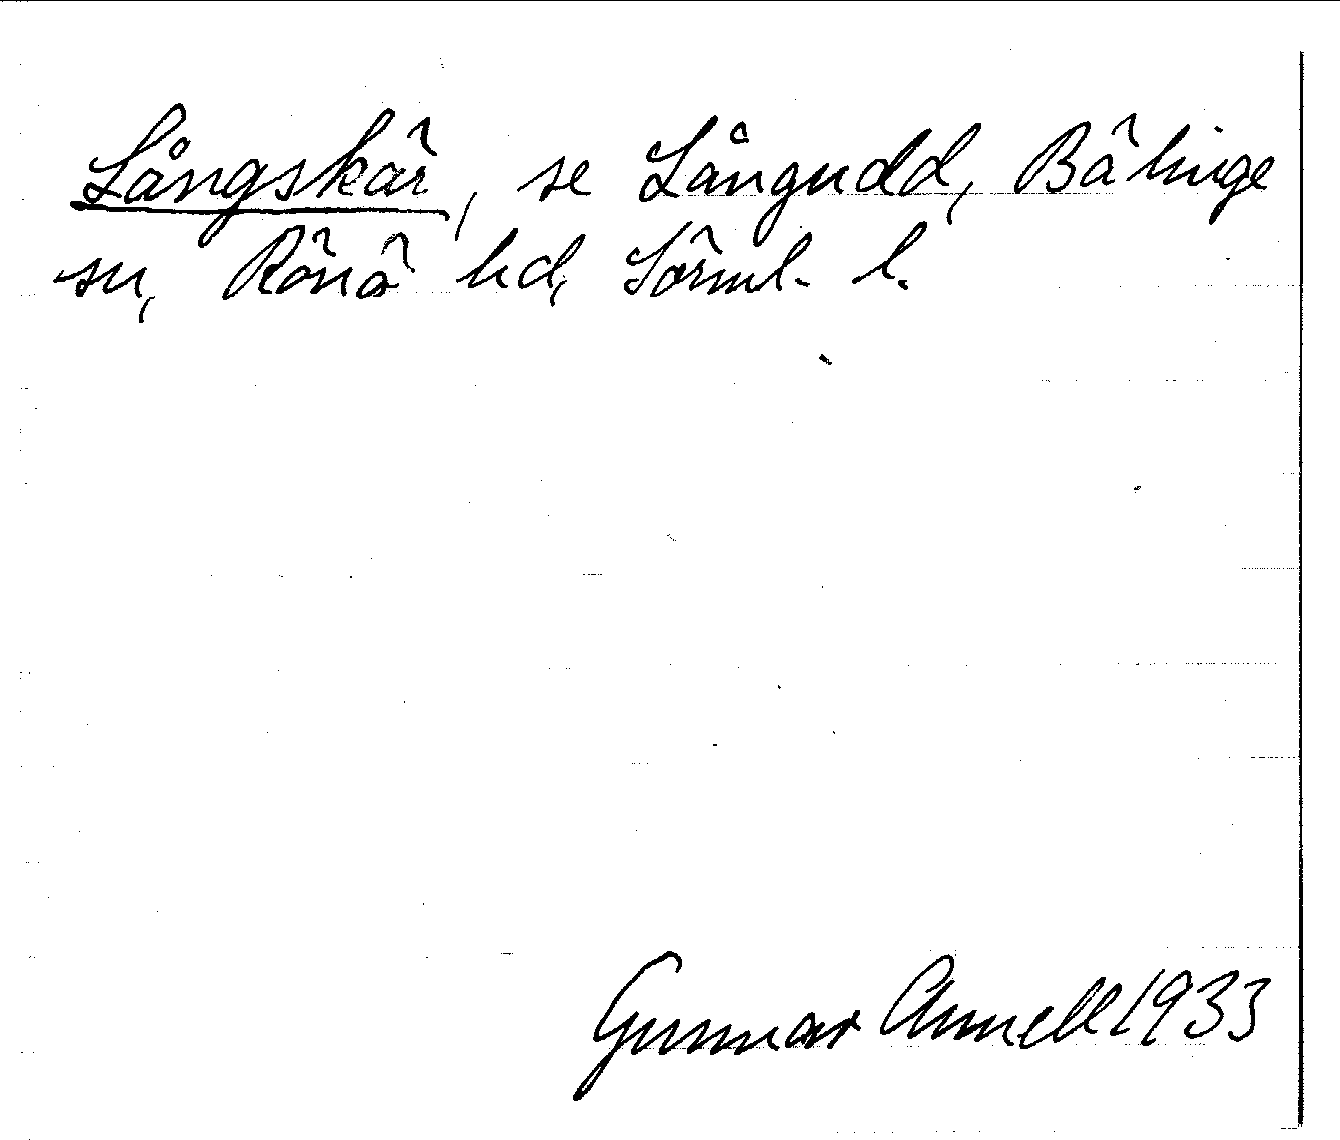 Långskär, se Långudd, Bälinge
sn, Rönö hd, Sörml. l.
Gunnar Annell 1933